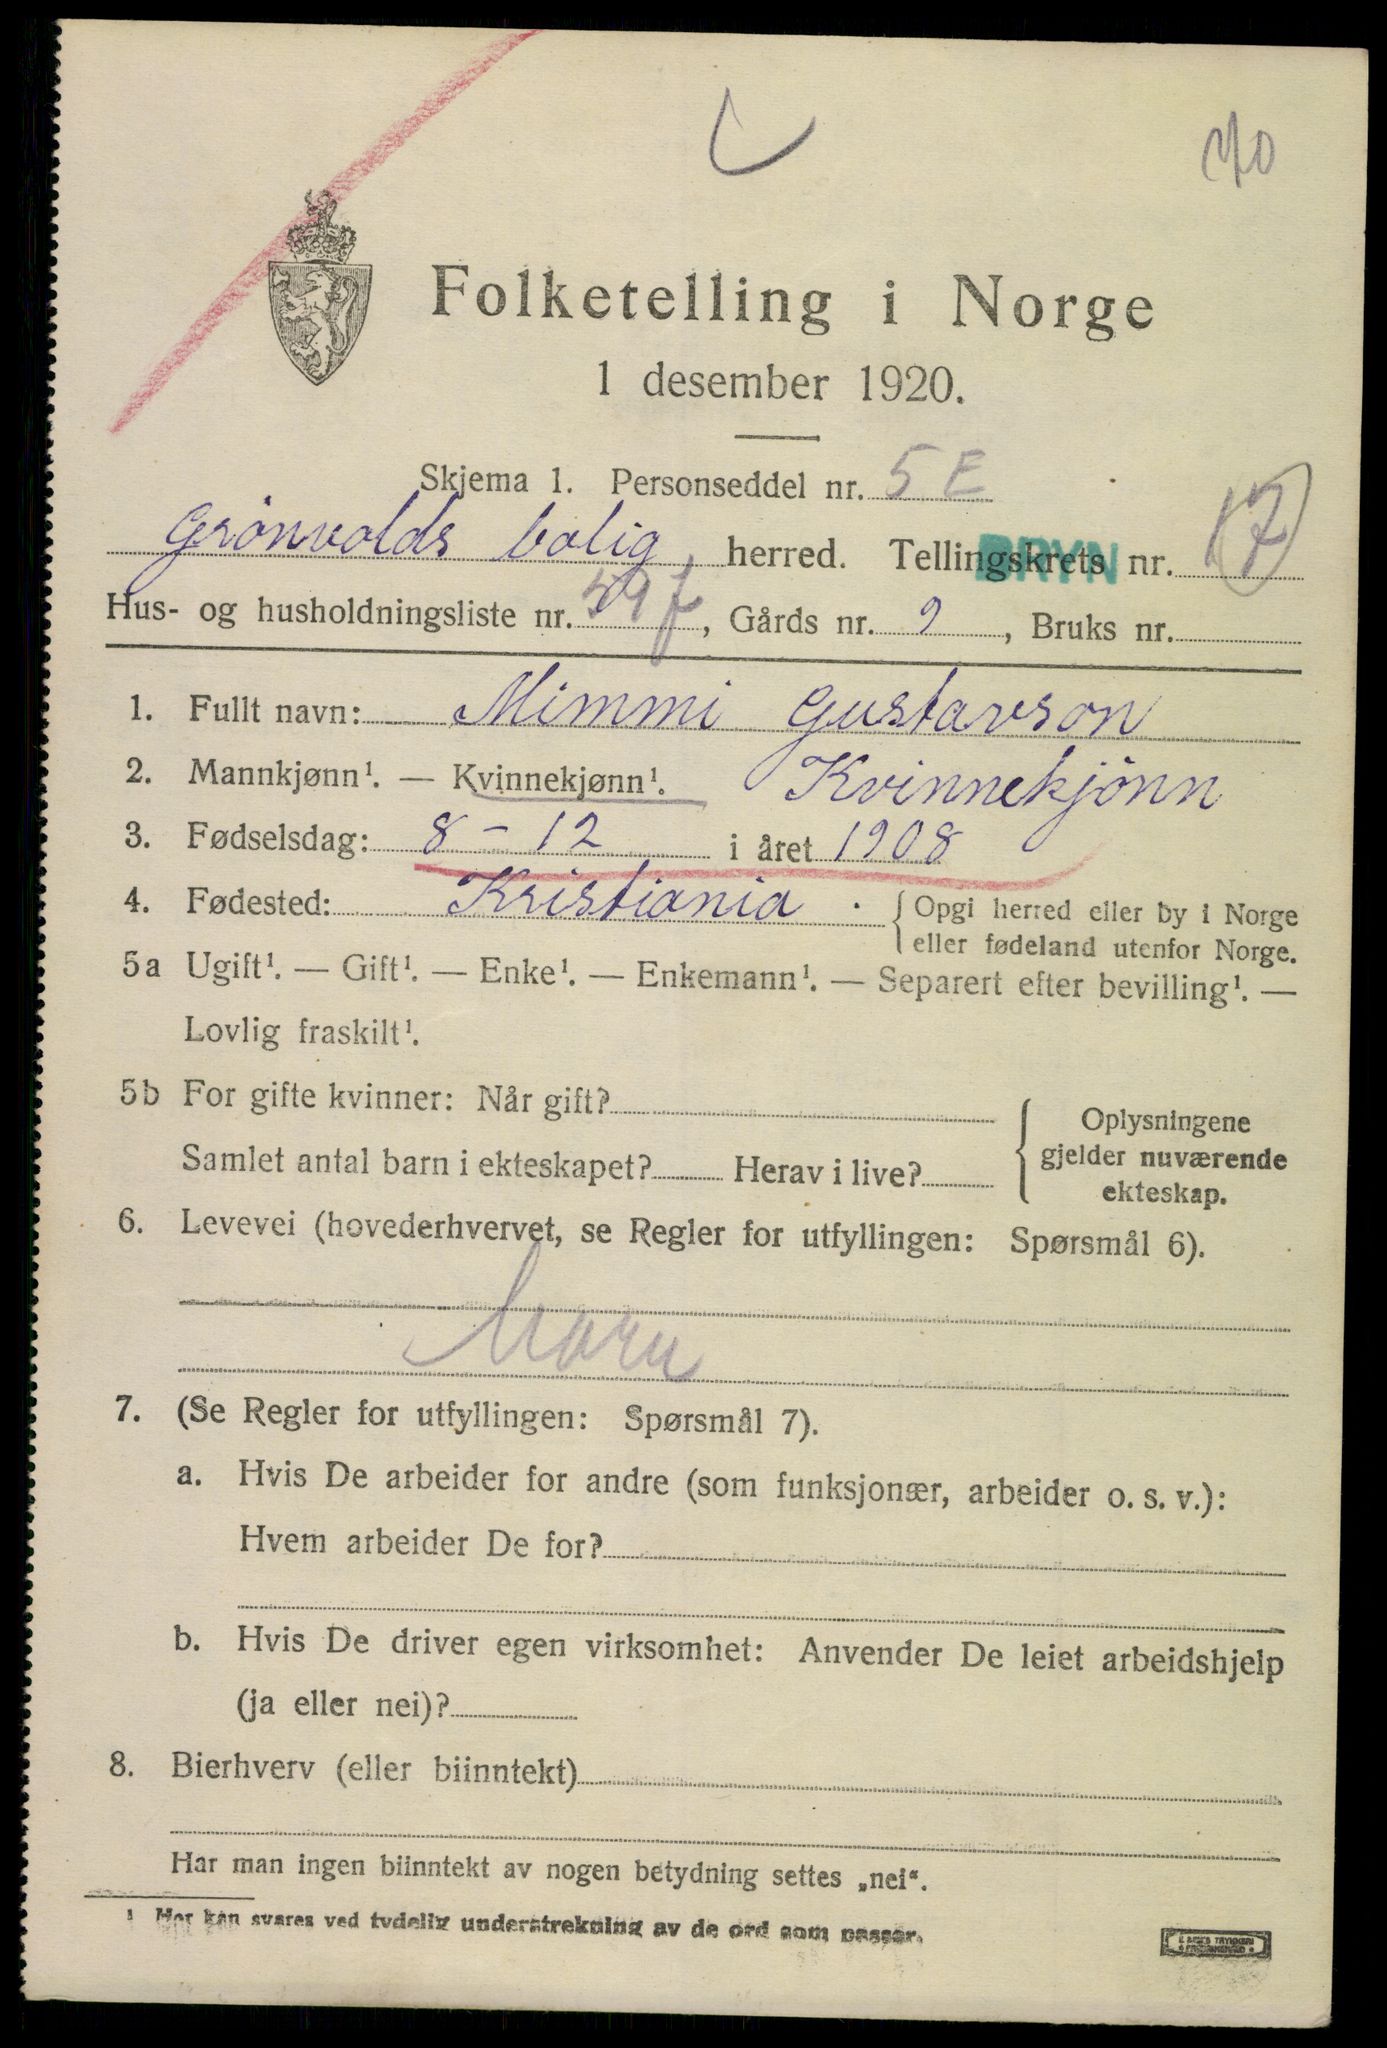 Folketelling i Norge
1 desember 1920.
Skjema 1. Personseddel nr. 5 E
Grönvolds bolig, herred. Tellingskrets nr. 17
BRYN
Hus- og husholdningsliste nr. , Gårds nr. 9, Bruks nr.
1. Fullt navn: Mimmi Gustavson
2. Mannkjønn¹. — Kvinnekjønn¹. Kvinnekjönn
3. Fødselsdag: 8 - 12 i året 1908
4. Fødested: Kristiania. { Opgi herred eller by i Norge
eller fødeland utenfor Norge.
5a Ugift¹. — Gift¹. — Enke¹. — Enkemann¹. — Separert efter bevilling¹. —
Lovlig fraskilt¹.
5b For gifte kvinner: Når gift?
Samlet antal barn i ekteskapet? Herav i live?
{ Oplysningene
gjelder nuværende
ekteskap.
6. Levevei (hovederhvervet, se Regler for utfyllingen: Spørsmål 6).
7. (Se Regler for utfyllingen: Spørsmål 7).
a. Hvis De arbeider for andre (som funksjonær, arbeider o. s. v.):
Hvem arbeider De for?
b. Hvis De driver egen virksomhet: Anvender De leiet arbeidshjelp
(ja eller nei)?
8. Bierhverv (eller biinntekt)
Har man ingen biinntekt av nogen betydning settes „nei“.
¹ Her kan svares ved tydelig understrekning av de ord som passer.